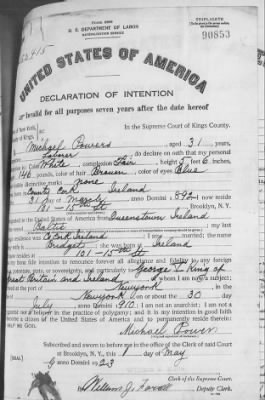 TRIPLICATE
U. S. DEPARTMENT OF LABOR
NATURALIZATION SERVICE
90853
UNITED STATES OF AMERICA
DECLARATION OF INTENTION
Invalid for all purposes seven years after the date hereof
In the Supreme Court of Kings County.
Michael Powers, aged 31 years,
Laborer, do declare on oath that my personal
White, complexion Fair, height 5 feet 6 inches,
146 pounds, color of hair Brown, color of eyes Blue
distinctive marks None
County Cork Ireland
31 day of March, anno Domini 1892
101-15 St, Brooklyn, N.Y.
United States of America from Queenstown Ireland
Baltic; my last
residence was Cork Ireland; I am now married; the name
Bridget; she was born at Ireland
101-15 St
bona fide intention to renounce forever all allegiance and fidelity to any foreign
potentate, state, or sovereignty, and particularly to George V King of
Great Britain and Ireland, of whom I am now a subject;
New York
New York, on or about the 30 day
July, anno Domini 1910; I am not an anarchist; I am not a
believer in the practice of polygamy; and it is my intention in good faith
to become a citizen of the United States of America and to permanently reside therein:
HELP ME GOD.
Michael Powers
Subscribed and sworn to before me in the office of the Clerk of said Court
at Brooklyn, N. Y., this 1 day of May
anno Domini 1923
[SEAL]
Clerk of the Supreme Court.
Deputy Clerk.